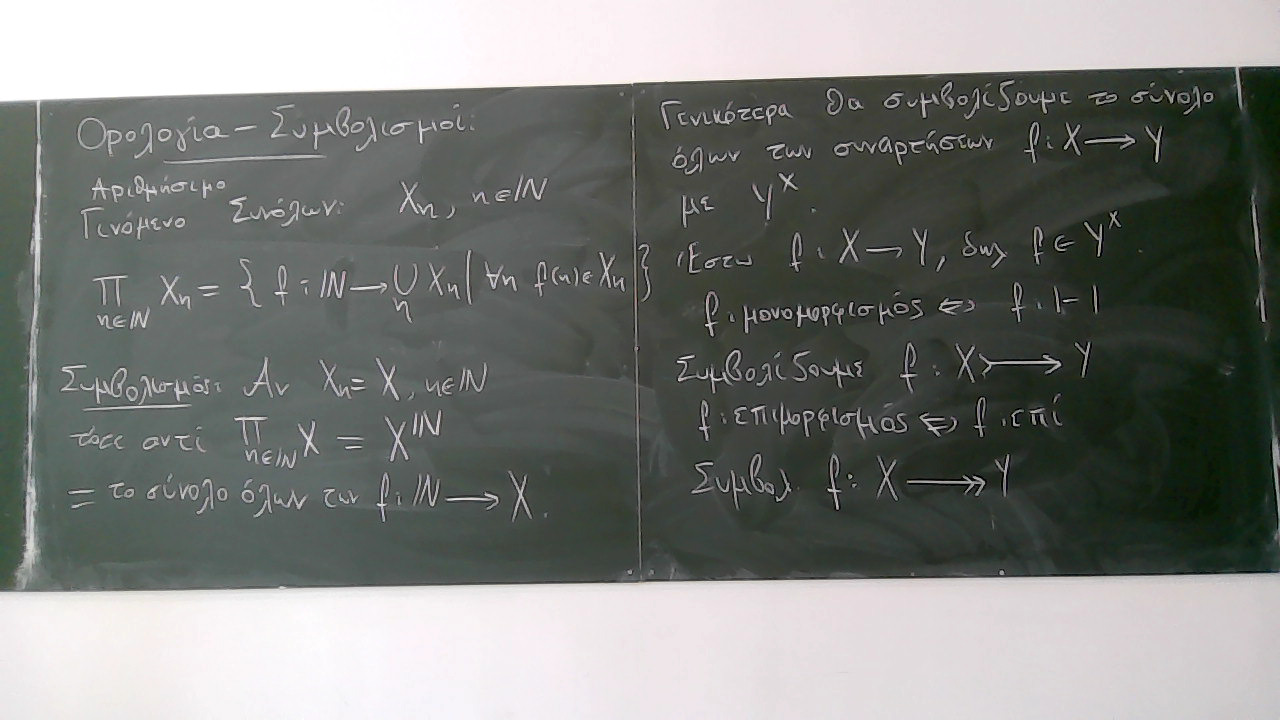 Ορολογία - Συμβολισμοί:
Αριθμήσιμο
Γινόμενο Συνόλων: Xₙ, n∈ℕ
∏_{n∈ℕ} Xₙ = { f : ℕ → ⋃_n Xₙ | ∀n f(n) ∈ Xₙ }
Συμβολισμός: Αν Xₙ = X, n∈ℕ
τότε αντί ∏_{n∈ℕ} X = X^ℕ
= το σύνολο όλων των f : ℕ → X.
Γενικότερα θα συμβολίζουμε το σύνολο
όλων των συναρτήσεων f : X → Y
με Y^X.
Έστω f : X → Y, δηλ f ∈ Y^X.
f : μονομορφισμός ⇔ f : 1-1
Συμβολίζουμε f : X ↣ Y
f : επιμορφισμός ⇔ f : επί
Συμβολ. f : X ↠ Y